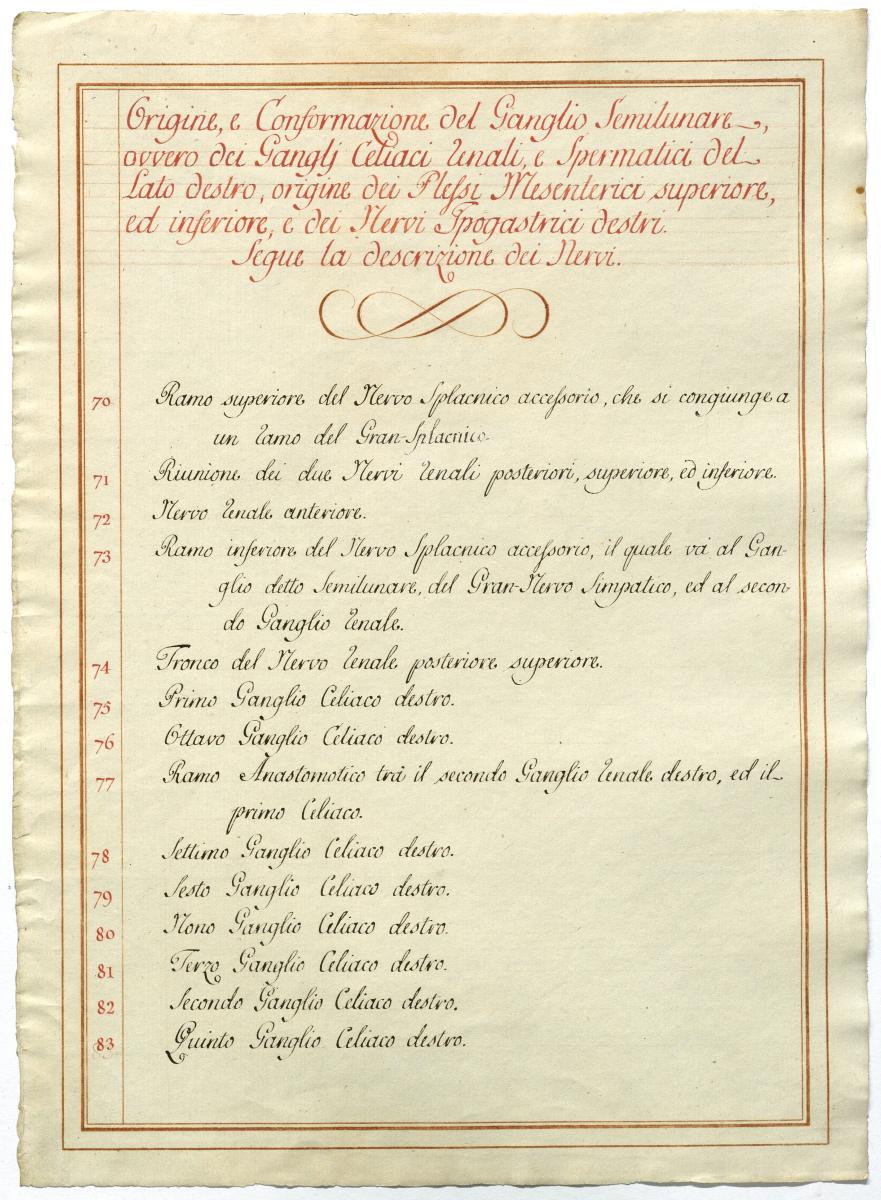 Origine, e Conformazione del Ganglio Semilunare,
ovvero dei Ganglj Celiaci Renali, e Spermatici del
Lato destro, origine dei Plessi Mesenterici superiore,
ed inferiore, e dei Nervi Ipogastrici destri.
Segue la descrizione dei Nervi.
70 Ramo superiore del Nervo Splacnico accessorio, che si congiunge a
un ramo del Gran-Splacnico.
71 Riunione dei due Nervi Renali posteriori, superiore, ed inferiore.
72 Nervo Renale anteriore.
73 Ramo inferiore del Nervo Splacnico accessorio, il quale và al Gan-
glio detto Semilunare, del Gran-Nervo Simpatico, ed al secon-
do Ganglio Renale.
74 Tronco del Nervo Renale posteriore superiore.
75 Primo Ganglio Celiaco destro.
76 Ottavo Ganglio Celiaco destro.
77 Ramo Anastomotico trà il secondo Ganglio Renale destro, ed il
primo Celiaco.
78 Settimo Ganglio Celiaco destro.
79 Sesto Ganglio Celiaco destro.
80 Nono Ganglio Celiaco destro.
81 Terzo Ganglio Celiaco destro.
82 Secondo Ganglio Celiaco destro.
83 Quinto Ganglio Celiaco destro.